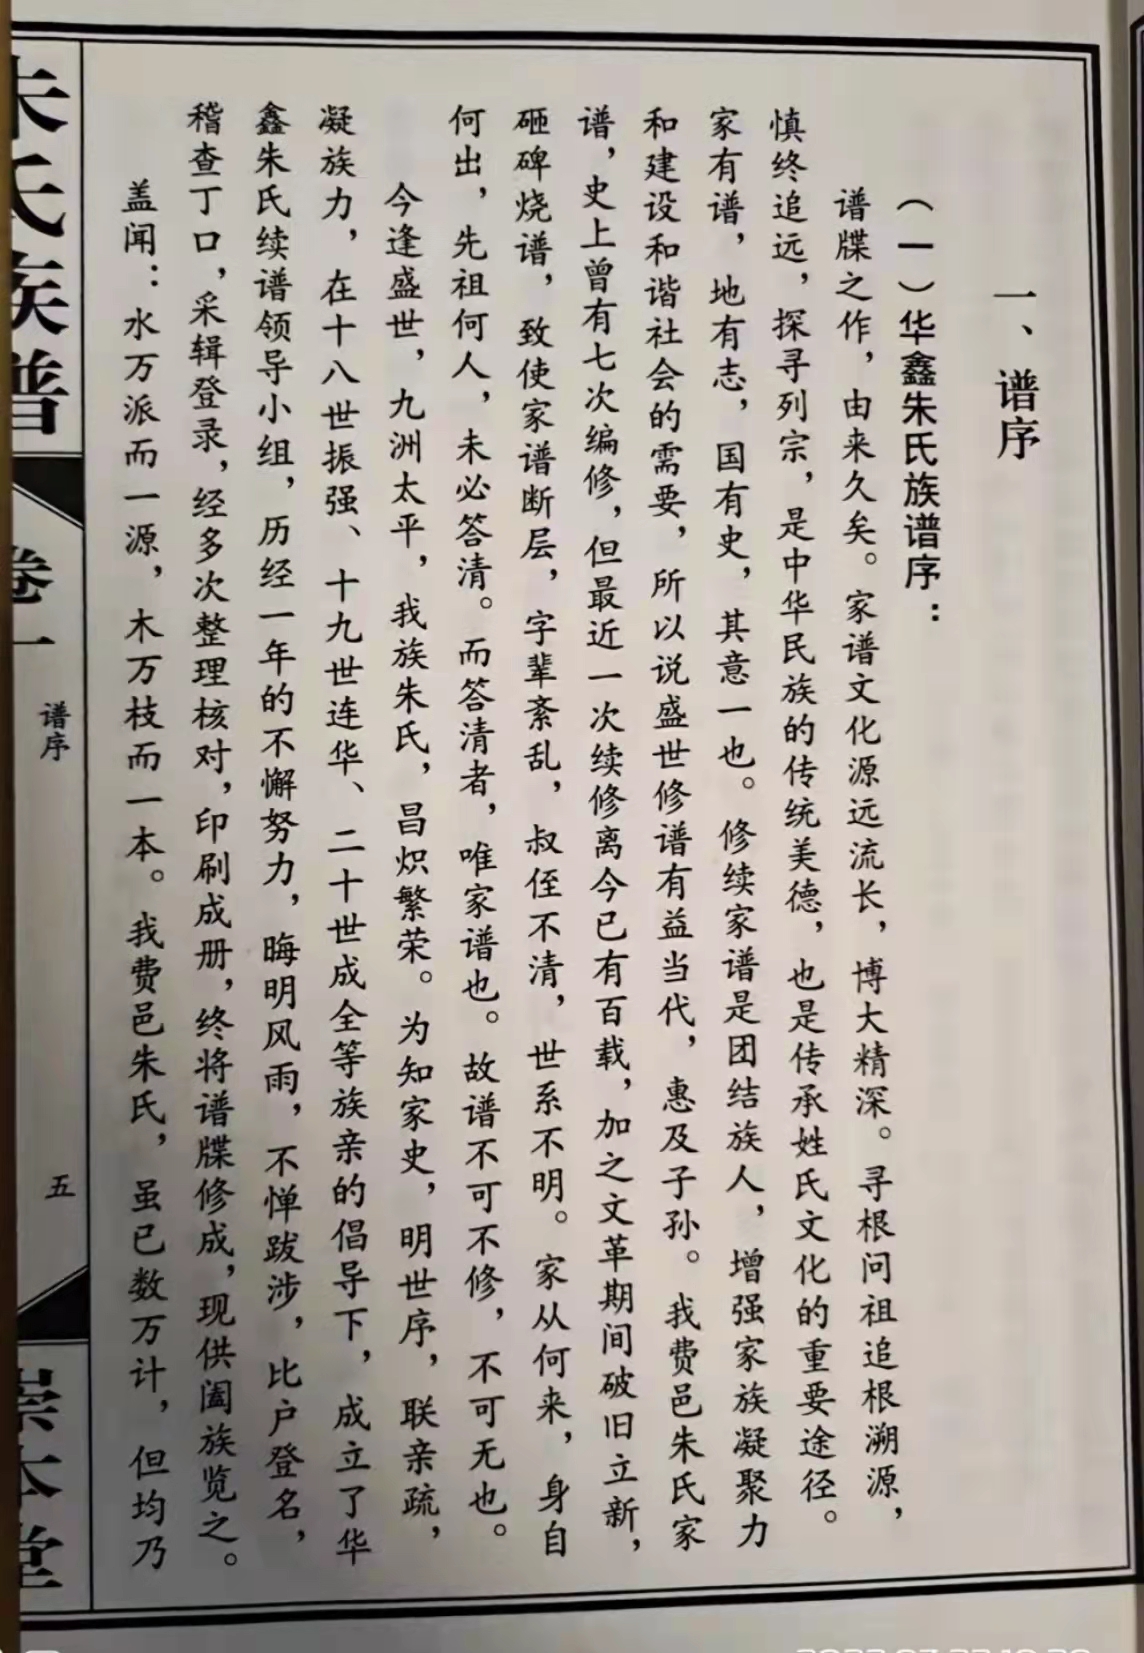 一、谱序
（一）华鑫朱氏族谱序：
谱牒之作，由来久矣。家谱文化源远流长，博大精深。寻根问祖追根溯源，
慎终追远，探寻列宗，是中华民族的传统美德，也是传承姓氏文化的重要途径。
家有谱，地有志，国有史，其意一也。修续家谱是团结族人，增强家族凝聚力
和建设和谐社会的需要，所以说盛世修谱有益当代，惠及子孙。我费邑朱氏家
谱，史上曾有七次编修，但最近一次续修离今已有百载，加之文革期间破旧立新，
砸碑烧谱，致使家谱断层，字辈紊乱，叔侄不清，世系不明。家从何来，身自
何出，先祖何人，未必答清。而答清者，唯家谱也。故谱不可不修，不可无也。
今逢盛世，九洲太平，我族朱氏，昌炽繁荣。为知家史，明世序，联亲疏，
凝族力，在十八世振强、十九世连华、二十世成全等族亲的倡导下，成立了华
鑫朱氏续谱领导小组，历经一年的不懈努力，晦明风雨，不惮跋涉，比户登名，
稽查丁口，采辑登录，经多次整理核对，印刷成册，终将谱牒修成，现供阖族览之。
盖闻：水万派而一源，木万枝而一本。我费邑朱氏，虽已数万计，但均乃
朱氏族谱
卷一
谱序
五
崇本堂